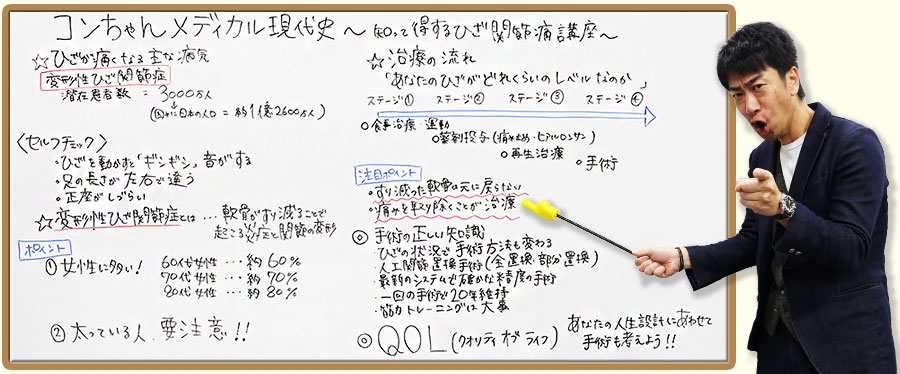 コンちゃんメディカル現代史 ～知って得するひざ関節痛講座～
☆ひざが痛くなる主な病気
変形性ひざ関節症
潜在患者数 = 3000万人
(因みに日本の人口 = 約1億2600万人)
〈セルフチェック〉
・ひざを動かすと「ギシギシ」音がする
・足の長さが左右で違う
・正座がしづらい
☆変形性ひざ関節症とは…軟骨がすり減ることで
起こる炎症と関節の変形
ポイント
①女性に多い!
60代女性…約60%
70代女性…約70%
80代女性…約80%
②太っている人 要注意!!
☆治療の流れ
「あなたのひざがどれくらいのレベルなのか」
ステージ① ステージ② ステージ③ ステージ④
○食事治療・運動
○薬剤投与(痛み止め・ヒアルロンサン)
○再生治療
○手術
注目ポイント
・すり減った軟骨は元に戻らない
・痛みを取り除くことが治療
◎手術の正しい知識
・ひざの状況で手術方法も変わる
・人工関節置換手術(全置換・部分置換)
・最新のシステムで確かな精度の手術
・一回の手術で20年維持
・筋力トレーニングは大事
◎QOL(クオリティオブライフ)
あなたの人生設計にあわせて
手術も考えよう!!